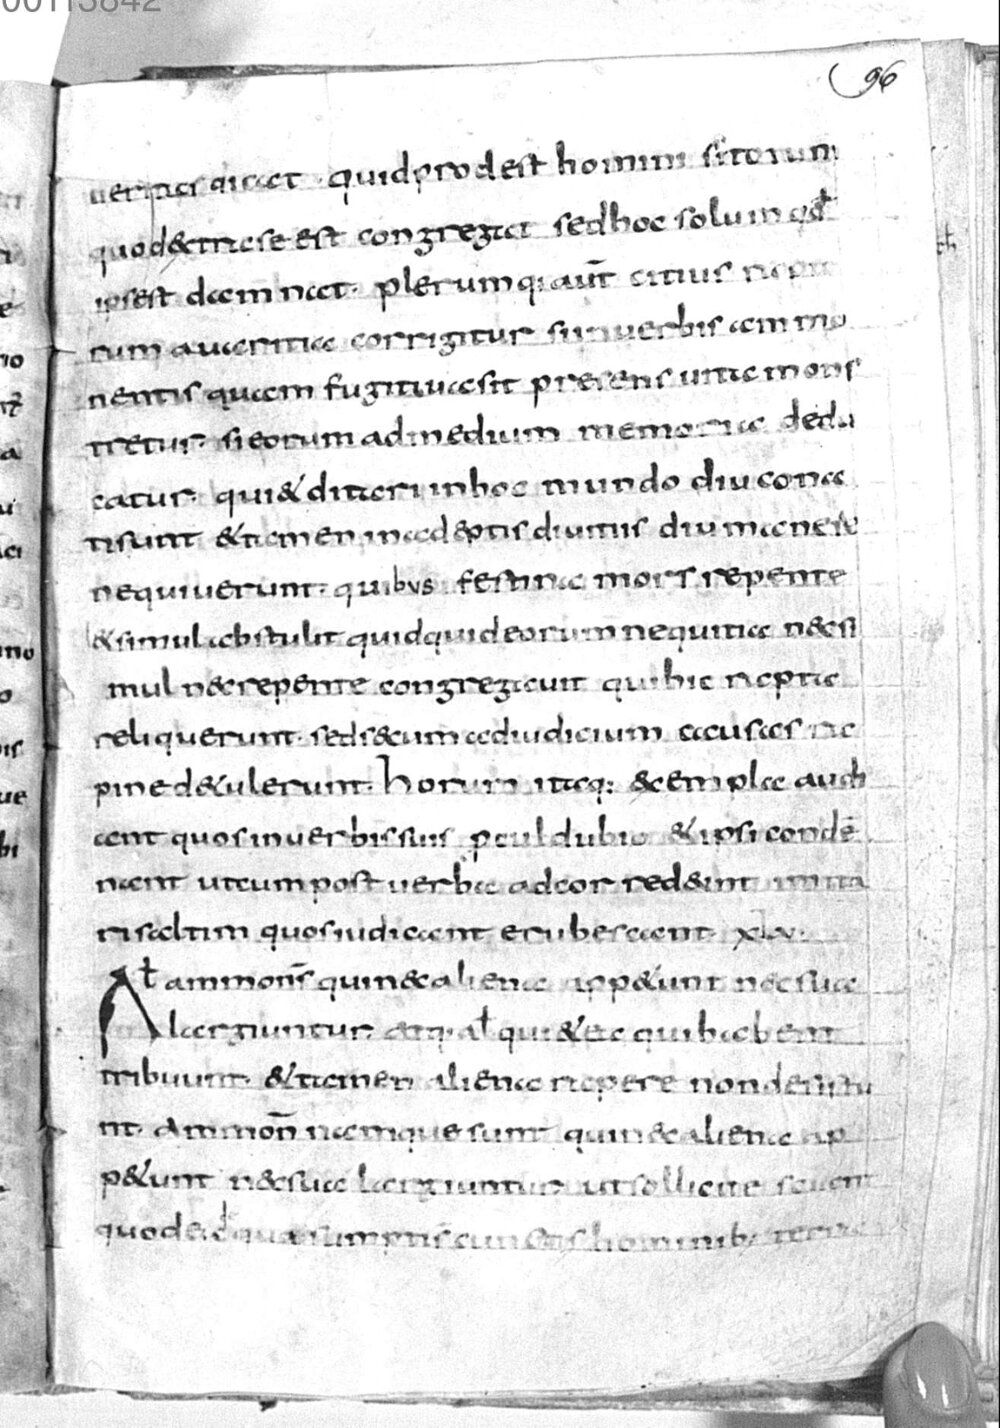 00113842
96
ueritas dicat quid prodest homini si totum
quod &tra se est congregat sed hoc solum qd
ips est damnat. plerumq: aut citius rapto
rum auaritia corrigitur si in uerbis ammo
nentis quam fugitiua sit presens uita mons
tretur. si eorum ad medium memoria dedu
catur. qui & ditari in hoc mundo diu cona
ti sunt & tamen in adeptis diuitiis diu manere
nequiuerunt. quibus festina mors repente
& simul abstulit quidquid eorum nequitia nec si
mul nec repente congregauit qui hic rapta
reliquerunt. sed secum ad iudicium causas ra
pine d&ulerunt. horum itaq: exempla audi
ant quos in uerbis suis pcul dubio & ipsi condē
nant ut cum post uerba ad cor redeunt imita
ri saltim quos iudicant erubescant. xlv.
At ammonēs qui nec aliena app&unt nec sua
largiuntur. atq: al qui & ea qui habent
tribuunt. & tamen aliena rapere non desistu
nt. Ammon namque sunt qui nec aliena ap
p&unt nec sua largiuntur ut sollicite sciant
quod ea d qua sumpti s cunctis hominib: terra